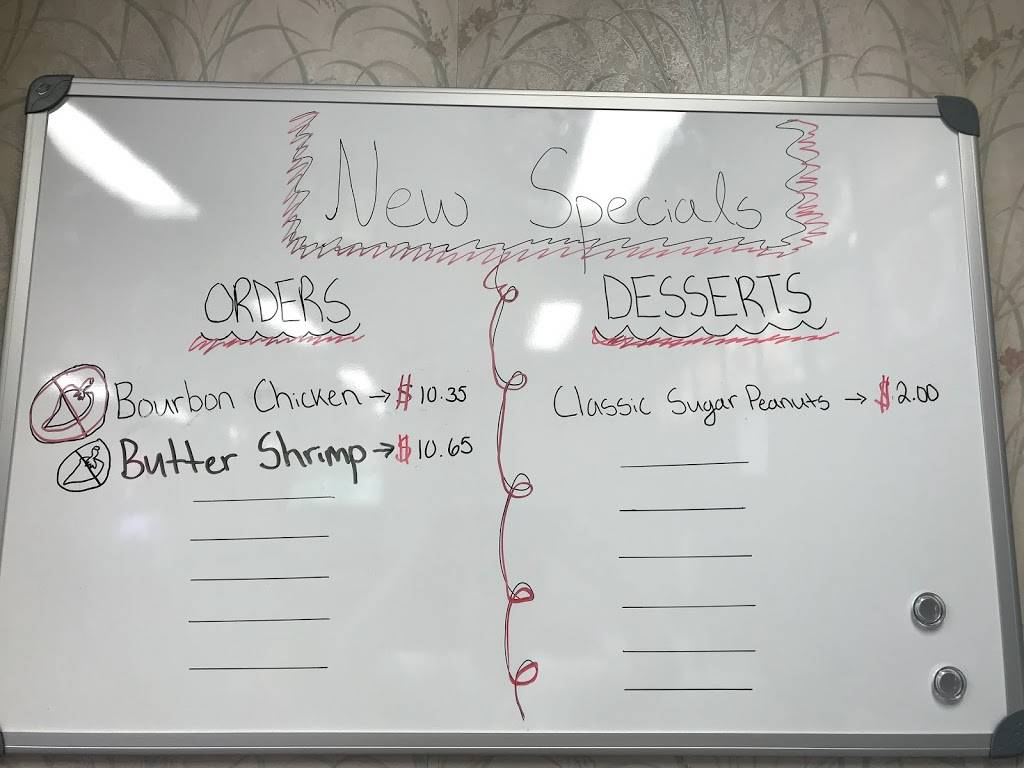 New Specials
ORDERS
Bourbon Chicken → $ 10.35
Butter Shrimp → $ 10.65
DESSERTS
Classic Sugar Peanuts → $2.00